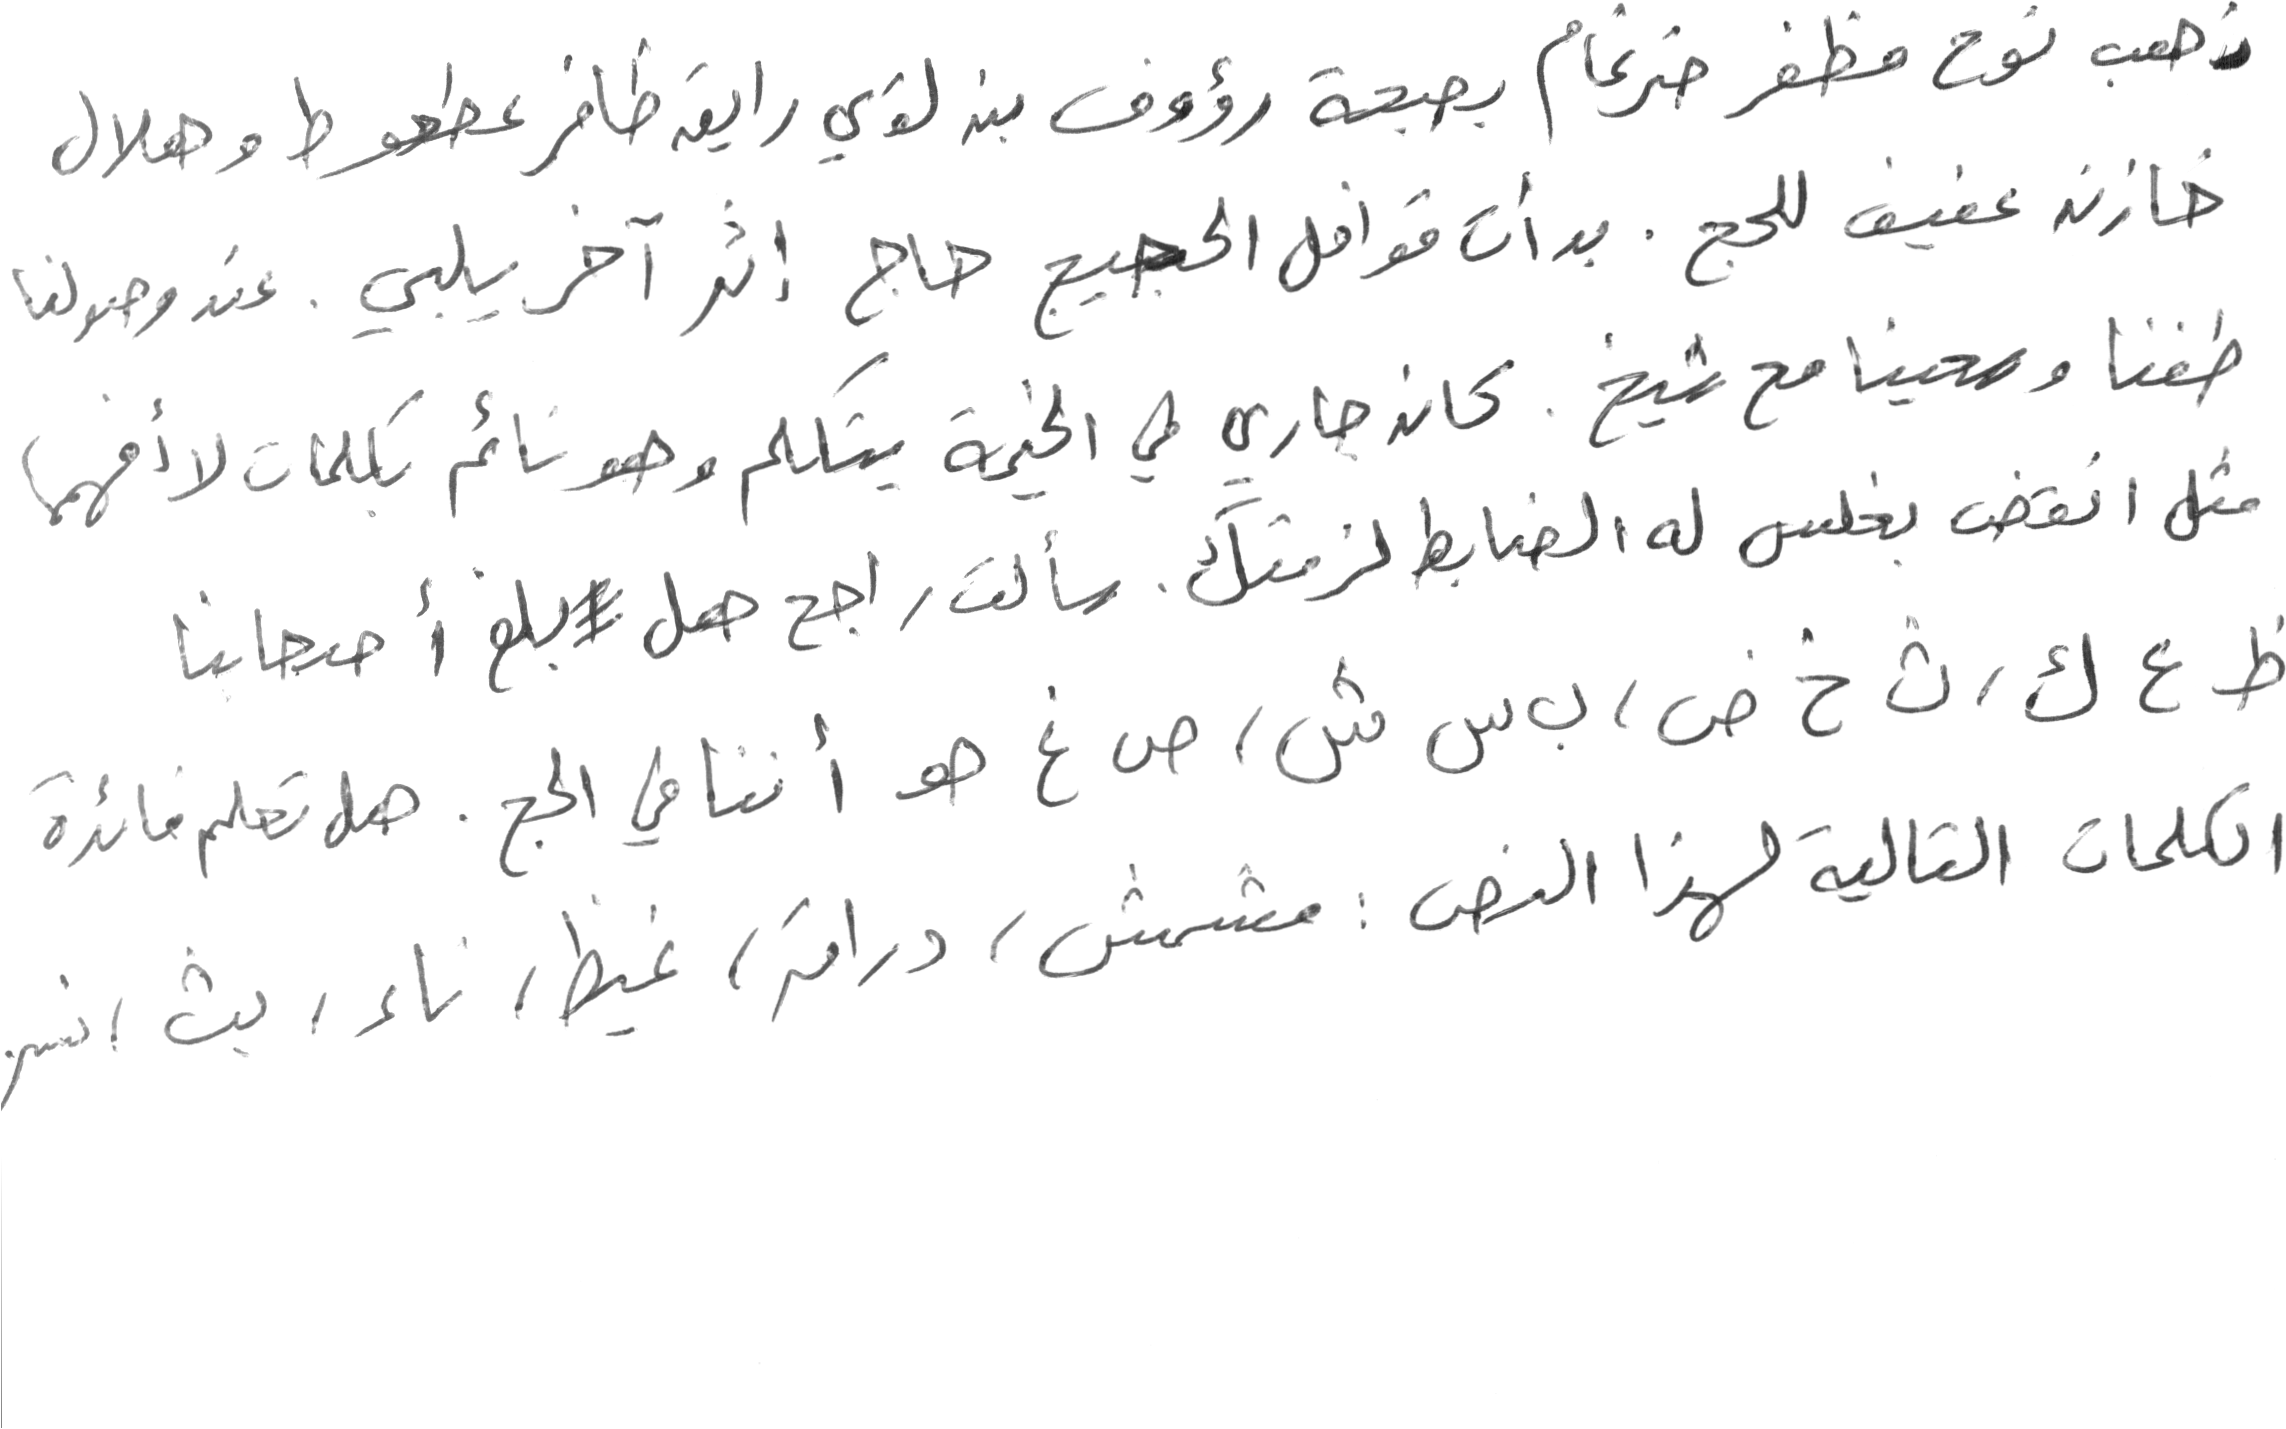 ذهب نوح مظفر ضرغام بصحبة رؤوف بن لؤي رايق ظافر عطعوط وهلال
خازن عفيف للحج . بدأت قوافل الحجيج حاج إثر آخر يلبي . عند وصولنا
طفنا وسعينا مع شيخ . كان جاري في الخيمة يتكلم وهو نائم بكلمات لا أفهمها
مثل انقض بغلس له الضابط لزمتك . سألت راجح هل بلغ أصحابنا
ظ ع ك ، ث خ ض ، ب س ش ، ص غ هو أننا في الحج . هل تعلم فائدة
الكلمات التالية لهذا النص : مشمش ، دراق ، غيظ ، ناء ، بث ،